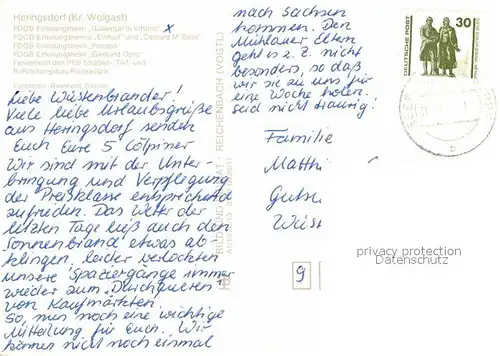 Heringsdorf (Kr. Wolgast)
FDGB-Erholungsheim „Giuseppe di Vittorio" x
FDGB-Erholungsheime „Einheit" und „Clement M. Basil"
FDGB-Erholungsheim „Frieden"
FDGB-Erholungsheim „Gerhard Opitz"
Ferienheim des VEB Straßen-, Tief- und
Rohrleitungsbau Rodewisch
Liebe Wüstenbrander!
Viele liebe Urlaubsgrüße
aus Heringsdorf senden
Euch Eure 5 Cölpiner
Wir sind mit der Unter-
bringung und Verpflegung
der Preisklasse entsprechend
zufrieden. Das Wetter der
letzten Tage ließ auch den
Sonnenbrand etwas ab-
klingen, leider verlockten
unsere Spaziergänge immer
wieder zum „Durchqueren"
von Kaufmärkten.
So, nun noch eine wichtige
Mitteilung für Euch. Wir
können nicht noch einmal
nach Sachsen
kommen. Den
Mühlauer Eltern
geht es z. Z. nicht
besonders, so daß
wir sie zu uns für
eine Woche holen.
Seid nicht traurig!
BILD UND HEIMAT REICHENBACH (VOGTL)
DEUTSCHE POST
30
b
Familie
Matthi
Gutsc
Wüst
9
privacy protection
Datenschutz